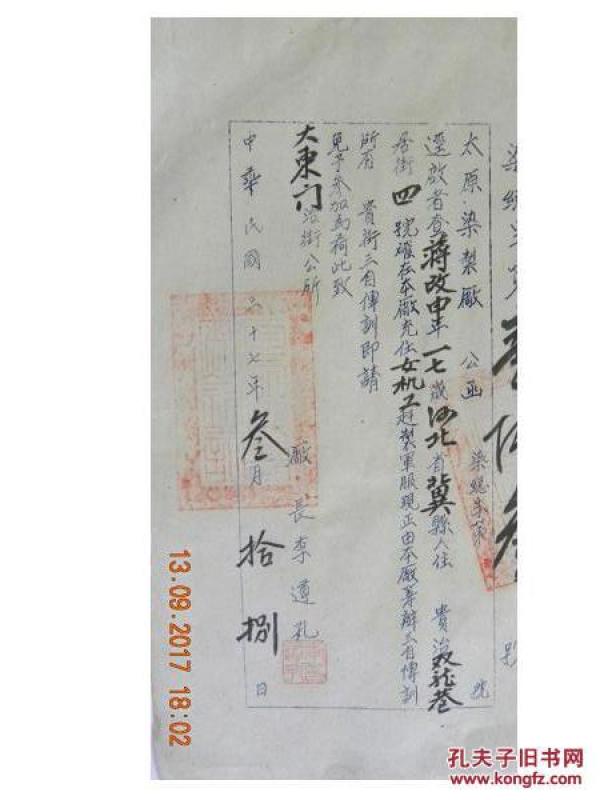 太原染製廠 公函 染總朱第 號
逕啟者查蔣改申年一七歲河北省冀縣人住 貴治双龍巷
居街四號確在本廠充任女机工赶製軍服現正由本廠籌辦三自傳訓
所有 貴街三自傳訓即請
免予參加為荷此致
大東門沿街公所
廠長李道礼
中華民國三十七年叁月拾捌日
13.09.2017 18:02
孔夫子旧书网
www.kongfz.com